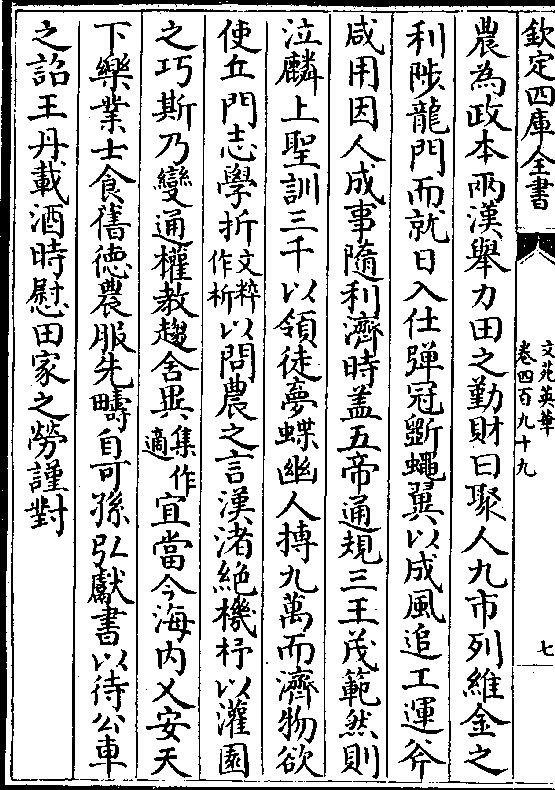 欽定四庫全書
文苑英華
卷四百九十九
七
農為政本兩漢舉力田之勤財曰聚人九市列維金之
利陟龍門而就日入仕彈冠斵蠅翼以成風追工運斧
咸用因人成事隨利濟時盖五帝通規三王茂範然則
泣麟上聖訓三千以領徒夢蝶幽人摶九萬而濟物欲
使丘門志學折文粹作析以問農之言漢渚絶機杼以灌園
之巧斯乃變通權教趨舍異集作適宜當今海内乂安天
下樂業士食舊徳農服先疇自可孫弘獻書以待公車
之詔王丹載酒時慰田家之勞謹對